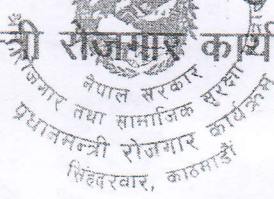 न्त्री रोजगार कार्य
नेपाल सरकार
रोजगार तथा सामाजिक सुरक्षा
प्रधानमन्त्री रोजगार कार्यक्रम
सिंहदरवार, काठमाडौं